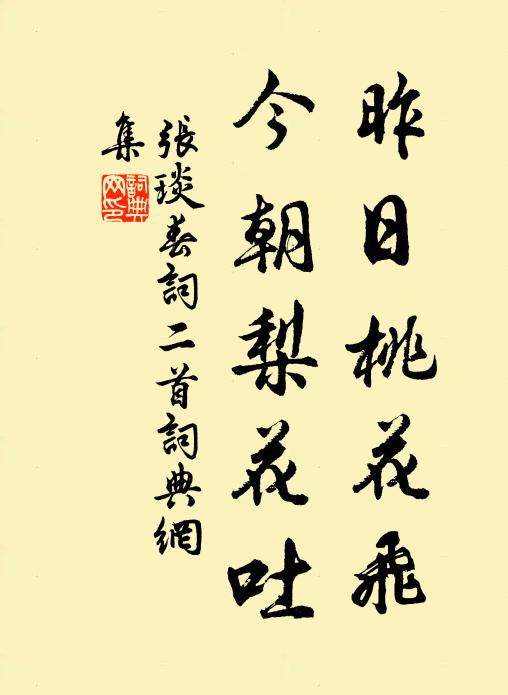 昨日桃花飛
今朝梨花吐
張琰春詞二首詞典網
集
詞典
网印